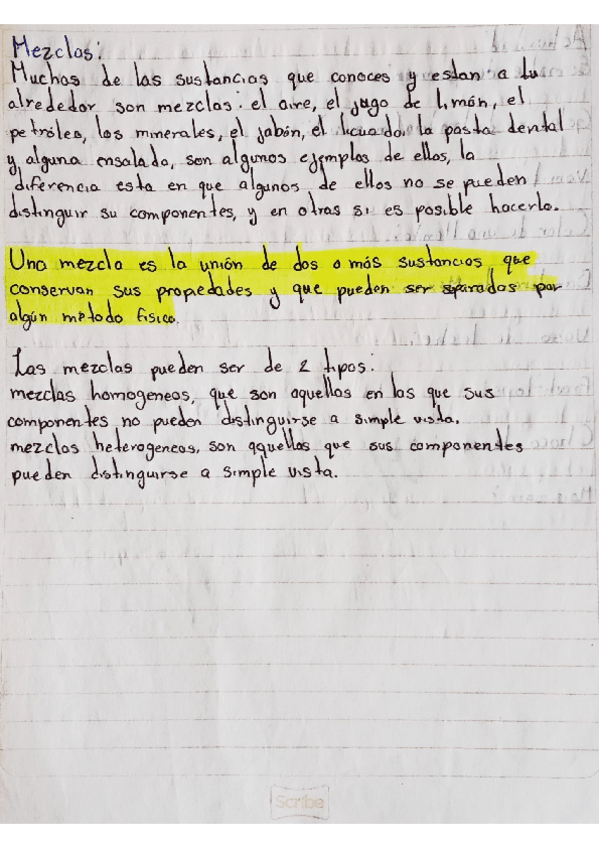 Mezclas:
Muchas de las sustancias que conoces y estan a tu
alrededor son mezclas: el aire, el jugo de limón, el
petróleo, los minerales, el jabón, el licuado, la pasta dental
y alguna ensalada, son algunos ejemplos de ellas, la
diferencia esta en que algunos de ellos no se pueden
distinguir su componentes, y en otras si es posible hacerlo.
Una mezcla es la unión de dos o más sustancias que
conservan sus propiedades y que pueden ser separadas por
algún método físico.
Las mezclas pueden ser de 2 tipos:
mezclas homogeneas, que son aquellas en las que sus
componentes no pueden distinguirse a simple vista.
mezclas heterogeneas, son aquellas que sus componentes
pueden distinguirse a simple vista.
Scribe